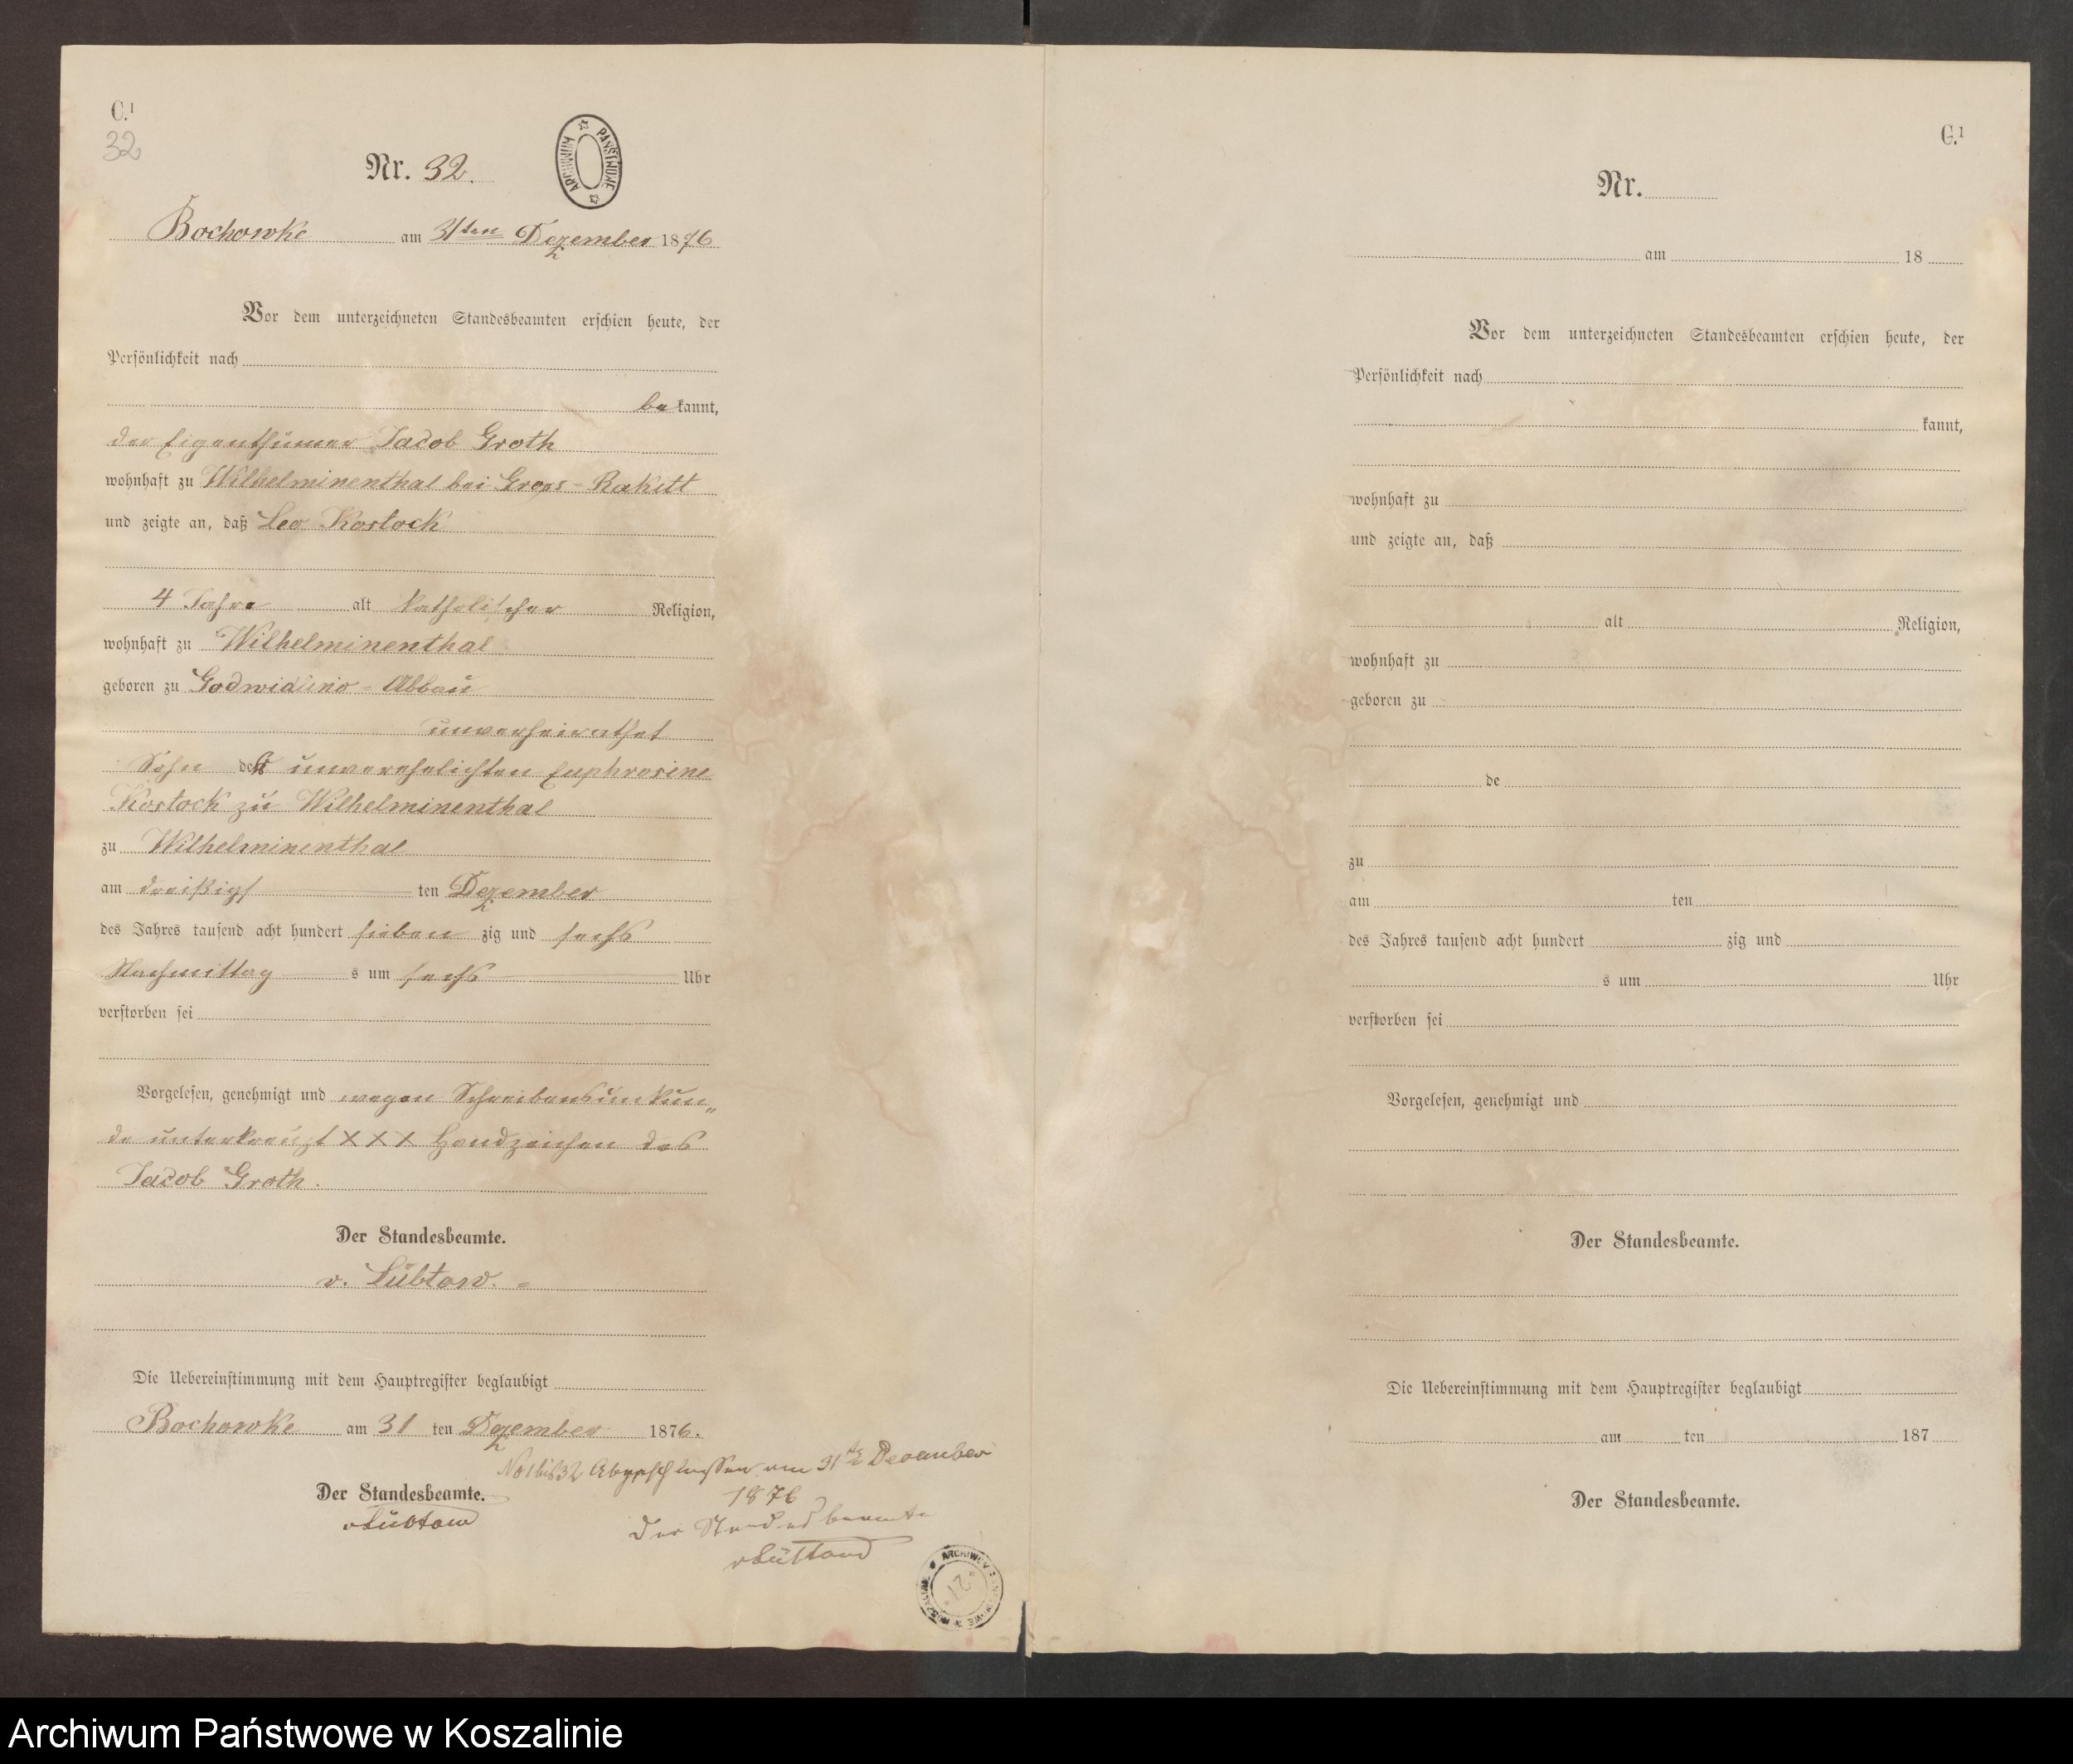 C.¹
32
Nr. 32.
ARCHIWUM PAŃSTWOWE
Bochowke am 31ten Dezember 1876
Vor dem unterzeichneten Standesbeamten erschien heute, der
Persönlichkeit nach
be kannt,
der Eigenthümer Jacob Groth
wohnhaft zu Wilhelminenthal bei Gross-Rakitt
und zeigte an, daß Leo Kostock
4 Jahre alt katholischer Religion,
wohnhaft zu Wilhelminenthal
geboren zu Abbau
unverheirathet
Sohn der unverehelichten Euphrosine
Kostock zu Wilhelminenthal
zu Wilhelminenthal
am dreißigs ten Dezember
des Jahres tausend acht hundert sieben zig und sechs
Nachmittag s um sechs Uhr
verstorben sei
Vorgelesen, genehmigt und wegen Schreibensunkun„
de unterkreuzt XXX Handzeichen des
Jacob Groth.
Der Standesbeamte.
v. Lübtow.
Die Uebereinstimmung mit dem Hauptregister beglaubigt
Bochowke am 31 ten Dezember 1876.
No 1 bis 32 Abgeschlossen am 31te December
1876
Der Standesbeamte.
vLübtow
Der Standesbeamte
vLübtow
G.¹
Nr.
am 18
Vor dem unterzeichneten Standesbeamten erschien heute, der
Persönlichkeit nach
kannt,
wohnhaft zu
und zeigte an, daß
alt Religion,
wohnhaft zu
geboren zu
de
zu
am ten
des Jahres tausend acht hundert zig und
s um Uhr
verstorben sei
Vorgelesen, genehmigt und
Der Standesbeamte.
Die Uebereinstimmung mit dem Hauptregister beglaubigt
am ten 187
Der Standesbeamte.
Archiwum Państwowe w Koszalinie